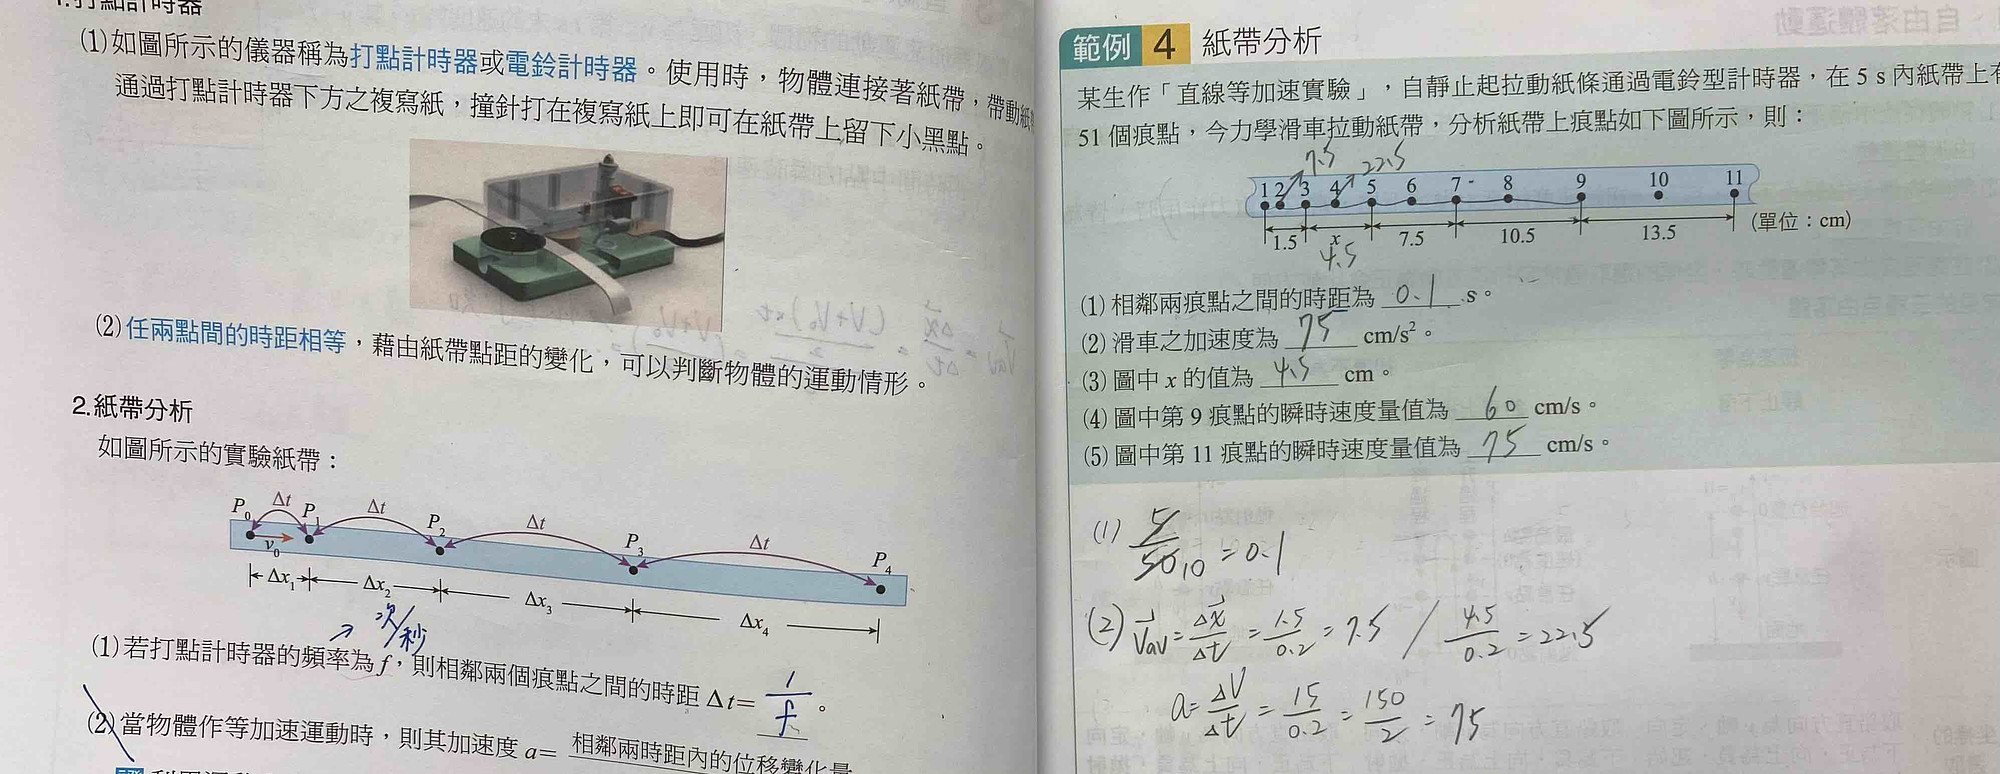 1.打點計時器
(1)如圖所示的儀器稱為打點計時器或電鈴計時器。使用時，物體連接著紙帶，帶動紙
通過打點計時器下方之複寫紙，撞針打在複寫紙上即可在紙帶上留下小黑點。
(2)任兩點間的時距相等，藉由紙帶點距的變化，可以判斷物體的運動情形。
2.紙帶分析
如圖所示的實驗紙帶：
P0 Δt P1 Δt P2 Δt P3 Δt P4
v0
Δx1 Δx2 Δx3 Δx4
次/秒
(1)若打點計時器的頻率為 f，則相鄰兩個痕點之間的時距 Δt= 1/f 。
(2)當物體作等加速運動時，則其加速度 a= 相鄰兩時距內的位移變化量
範例 4 紙帶分析
某生作「直線等加速實驗」，自靜止起拉動紙條通過電鈴型計時器，在 5 s 內紙帶上有
51 個痕點，今力學滑車拉動紙帶，分析紙帶上痕點如下圖所示，則：
7.5 22.5
1 2 3 4 5 6 7 8 9 10 11
1.5 x 7.5 10.5 13.5 (單位：cm)
4.5
(1) 相鄰兩痕點之間的時距為 0.1 s。
(2) 滑車之加速度為 75 cm/s²。
(3) 圖中 x 的值為 4.5 cm。
(4) 圖中第 9 痕點的瞬時速度量值為 60 cm/s。
(5) 圖中第 11 痕點的瞬時速度量值為 75 cm/s。
(1) 5/50 10 = 0.1
(2) Vav = Δx/Δt = 1.5/0.2 = 7.5 / 4.5/0.2 = 22.5
a = ΔV/Δt = 15/0.2 = 150/2 = 75